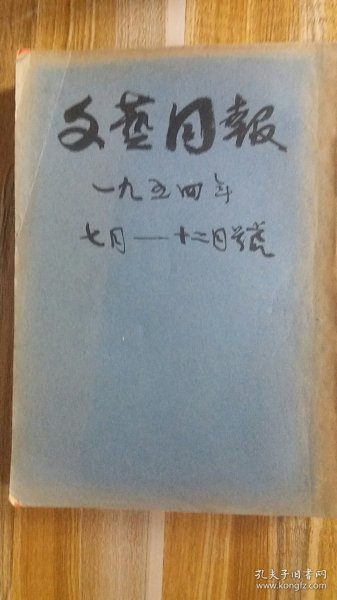 文藝月報
一九五四年
七月——十二月号
孔夫子旧书网
www.kongfz.com